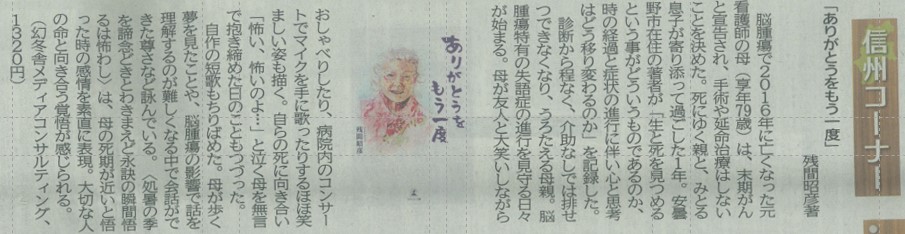 信州コーナー
「ありがとうをもう一度」
残間昭彦著
脳腫瘍で2016年に亡くなった元
看護師の母(享年79歳)は、末期がん
と宣告され、手術や延命治療はしない
ことを決めた。死にゆく親と、みとる
息子が寄り添って過ごした1年。安曇
野市在住の著者が「生と死を見つめる
という事がどういうものであるのか、
時の経過と症状の進行に伴い心と思考
はどう移り変わるのか」を記録した。
診断から程なく、介助なしでは排せ
つできなくなり、うろたえる母親。脳
腫瘍特有の失語症の進行を見守る日々
が始まる。母が友人と大笑いしながら
ありがとうを
もう一度
残間昭彦
おしゃべりしたり、病院内のコンサー
トでマイクを手に歌ったりするほほ笑
ましい姿も描く。自らの死に向き合い
「怖い、怖いのよ…」と泣く母を無言
で抱き締めた日のこともつづった。
自作の短歌もちりばめた。母が歩く
夢を見たことや、脳腫瘍の影響で話を
理解するのが難しくなる中で会話がで
きた尊さなど詠んでいる。〈処暑の季
を諦念どきとわきまえど永訣の瞬間悟
るは怖わし〉は、母の死期が近いと悟
った時の感情を素直に表現。大切な人
の命と向き合う覚悟が感じられる。
(幻冬舎メディアコンサルティング、
1320円)